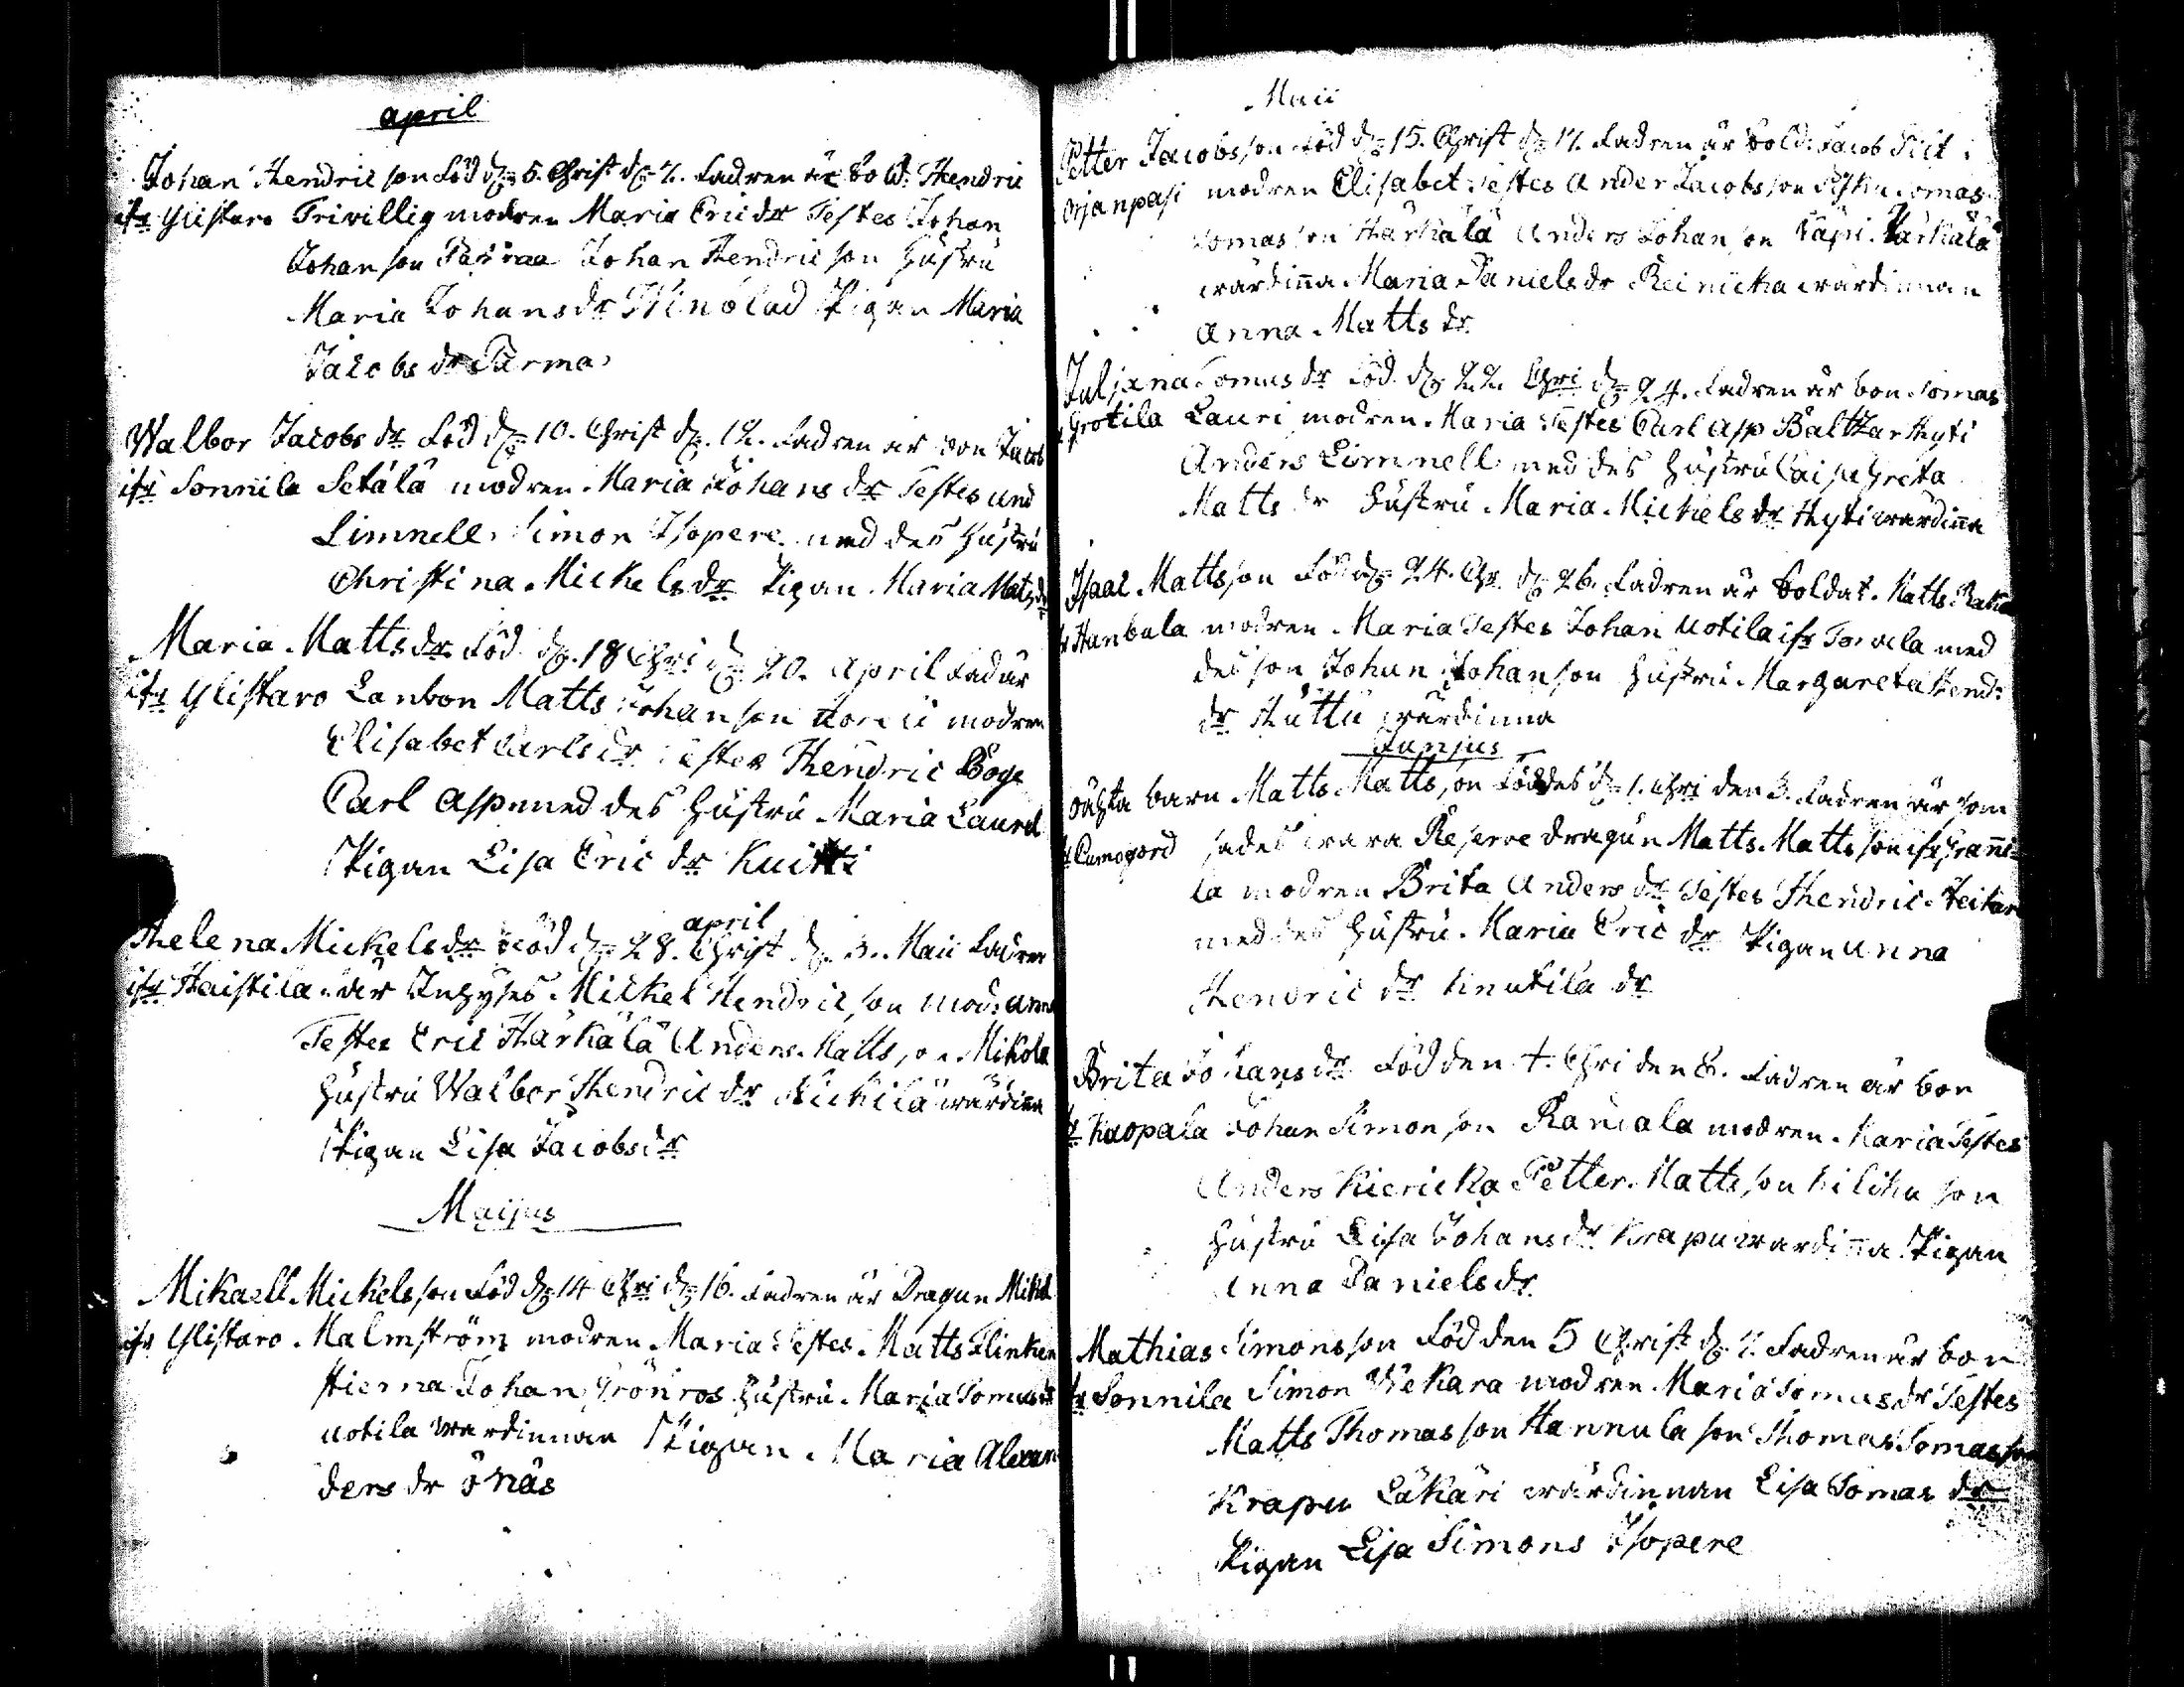 april
Johan Hendricson Föd d. 5. Christ d. 7. Fadren är Sold: Hendric
ifr Ylistaro Frivillig modren Maria Ericdr Testes Johan
Johanson Johan Hendricson Hustru
Maria Johansdr Pigan Maria
Jacobsdr Parma
Walbor Jacobsdr Föd d. 10. Christ d. 12. Fadren är bon Jacob
ifr Sonnila Setälä modren Maria Johansdr Testes And
Limnell Simon Isopere med des Hustru
Christina Mickelsdr Pigan Maria Matsdr
Maria Mattsdr Föd d. 18 Chri d. 20. April Fad är
ifr Ylistaro Lanbon Matts Johanson modren
Elisabet Carlsdr Testes Hendric Boge
Carl Asp med des Hustru Maria Laurel
Pigan Lisa Ericdr Kuitti
april
Helena Mickelsdr Föd d. 28. Christ d. 3. Maii Fadren
ifr Haistila är Inhyses Mickel Hendricson mod: Anna
Testes Eric Härkälä Anders Mattson Mikola
Hustru Walbor Hendricdr Mickilä wärdinna
Pigan Lisa Jacobsdr
Maijus
Mikaell Mickelsson Föd d. 14 Chri d. 16. Fadren är Dragun Mikel
ifr Ylistaro Malmström modren Maria Testes Matts Flinken
stierna Johan Grönros Hustru Maria Tomasdr
Uotila wardinnan Pigan Maria Alexan
ders dr önäs
Maii
Petter Jacobsson Föd d. 15. Christ d. 17. Fadren är Sold: Jacob
Orjanpasi modren Elisabet Testes Ander Jacobsson Tomas
Tomasson Härkälä Anders Johanson Käpi Härkälä
wärdinna Maria Danielsdr Reinicka wärdinnan
Anna Mattsdr
Juljana Tomasdr Föd d. 22. Chri d. 24. Fadren är bon Tomas
Grotila Lauri modren Maria Testes Carl Asp Baltzar Hyti
Anders Limnell med des Hustru Caisa Greta
Mattsdr Hustru Maria Mickelsdr Hyti wärdinna
Isaac Mattsson Föd d. 24. Chr. d. 26. Fadren är Soldat Matts
Hanbula modren Maria Testes Johan Uotila ifr Torvela med
des son Johan Johanson Hustru Margareta Hend:
dr Hüttü wärdinna
Junjus
oächta barn Matts Mattsson Föddes d. 1. Chri den 3. Fadren är som
Cumogord sades wara Reserve dragun Matts Mattsson ifr Tranni
la modren Brita Andersdr Testes Hendric Teikar
med des Hustru Maria Ericdr Pigan Anna
Hendricdr Knutila dr
Brita Johansdr Föd den 4. Chri den 8. Fadren är bon
Kuopala Johan Simonson Rancala modren Maria Testes
Anders Kiericka Petter Mattsson Kilcku son
Hustru Lisa Johansdr Krapu wardinna Pigan
Anna Danielsdr
Mathias Simonsson Föd den 5 Christ d. 7. Fadren är bon
ifr Sonnila Simon Wekara modren Maria Tomasdr Testes
Matts Thomasson Hannula son Thomas Tomasson
Krapu Läkäri wärdinnan Lisa Tomasdr
Pigan Lisa Simons Isopere